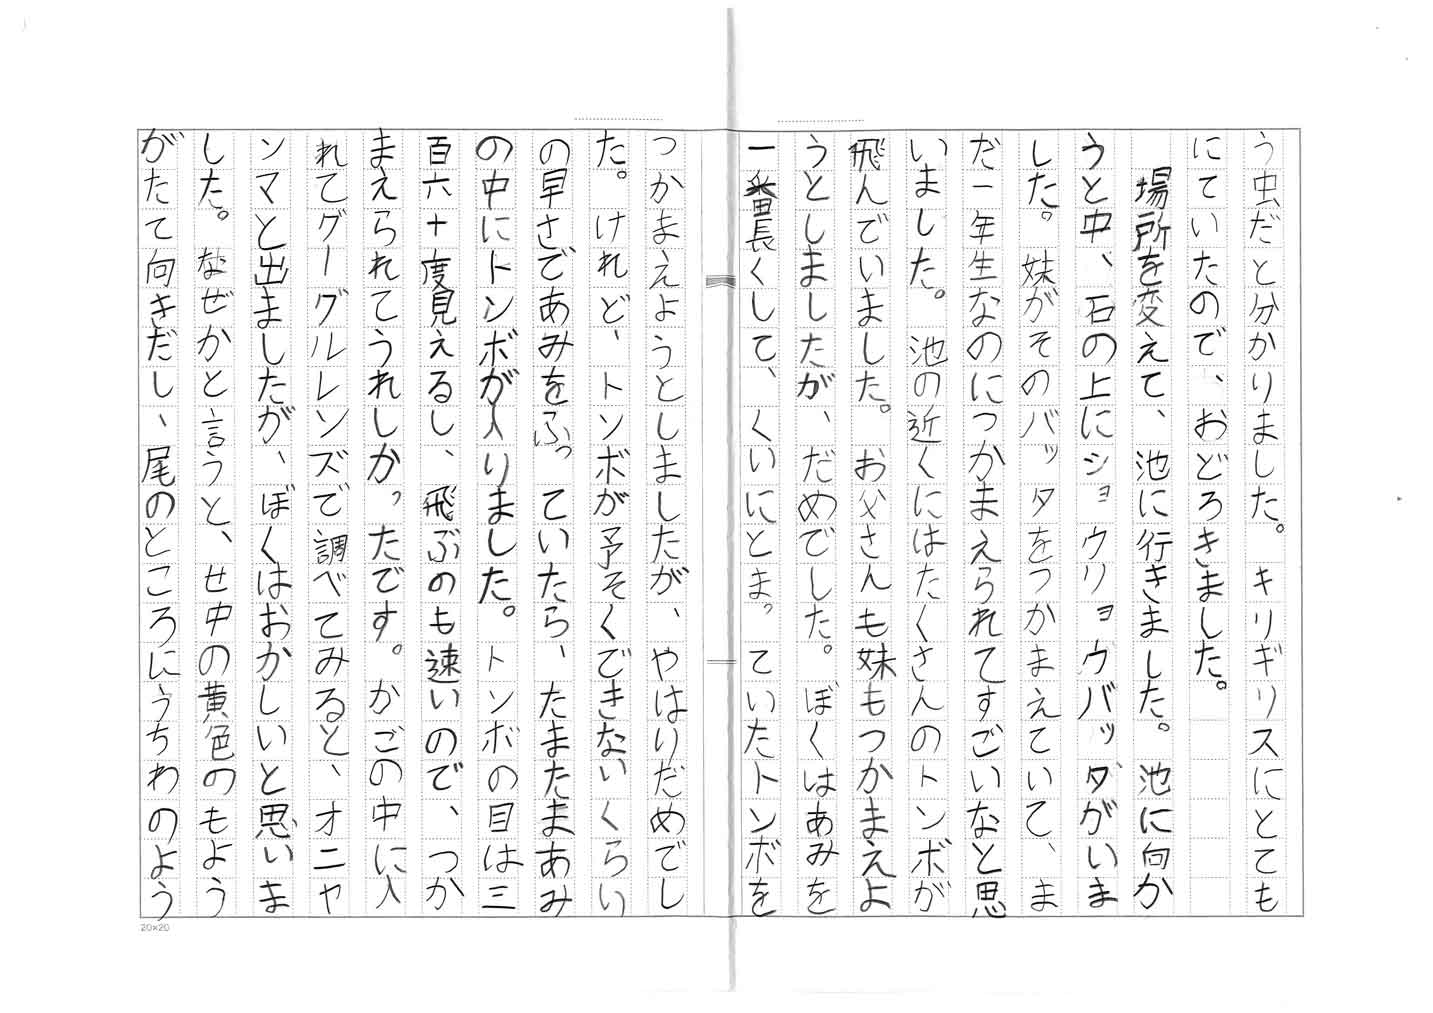 う虫だと分かりました。キリギリスにとても
にていたので、おどろきました。
場所を変えて、池に行きました。池に向か
うと中、石の上にショウリョウバッダがいま
した。妹がそのバッタをつかまえていて、ま
だ一年生なのにつかまえられてすごいなと思
いました。池の近くにはたくさんのトンボが
飛んでいました。お父さんも妹もつかまえよ
うとしましたが、だめでした。ぼくはあみを
一番長くして、くいにとまっていたトンボを
つかまえようとしましたが、やはりだめでし
た。けれど、トンボが予そくできないくらい
の早さであみをふっていたら、たまたまあみ
の中にトンボが入りました。トンボの目は三
百六十度見えるし、飛ぶのも速いので、つか
まえられてうれしかったです。かごの中に入
れてグーグルレンズで調べてみると、オニヤ
ンマと出ましたが、ぼくはおかしいと思いま
した。なぜかと言うと、せ中の黄色のもよう
がたて向きだし、尾のところにうちわのよう
20×20